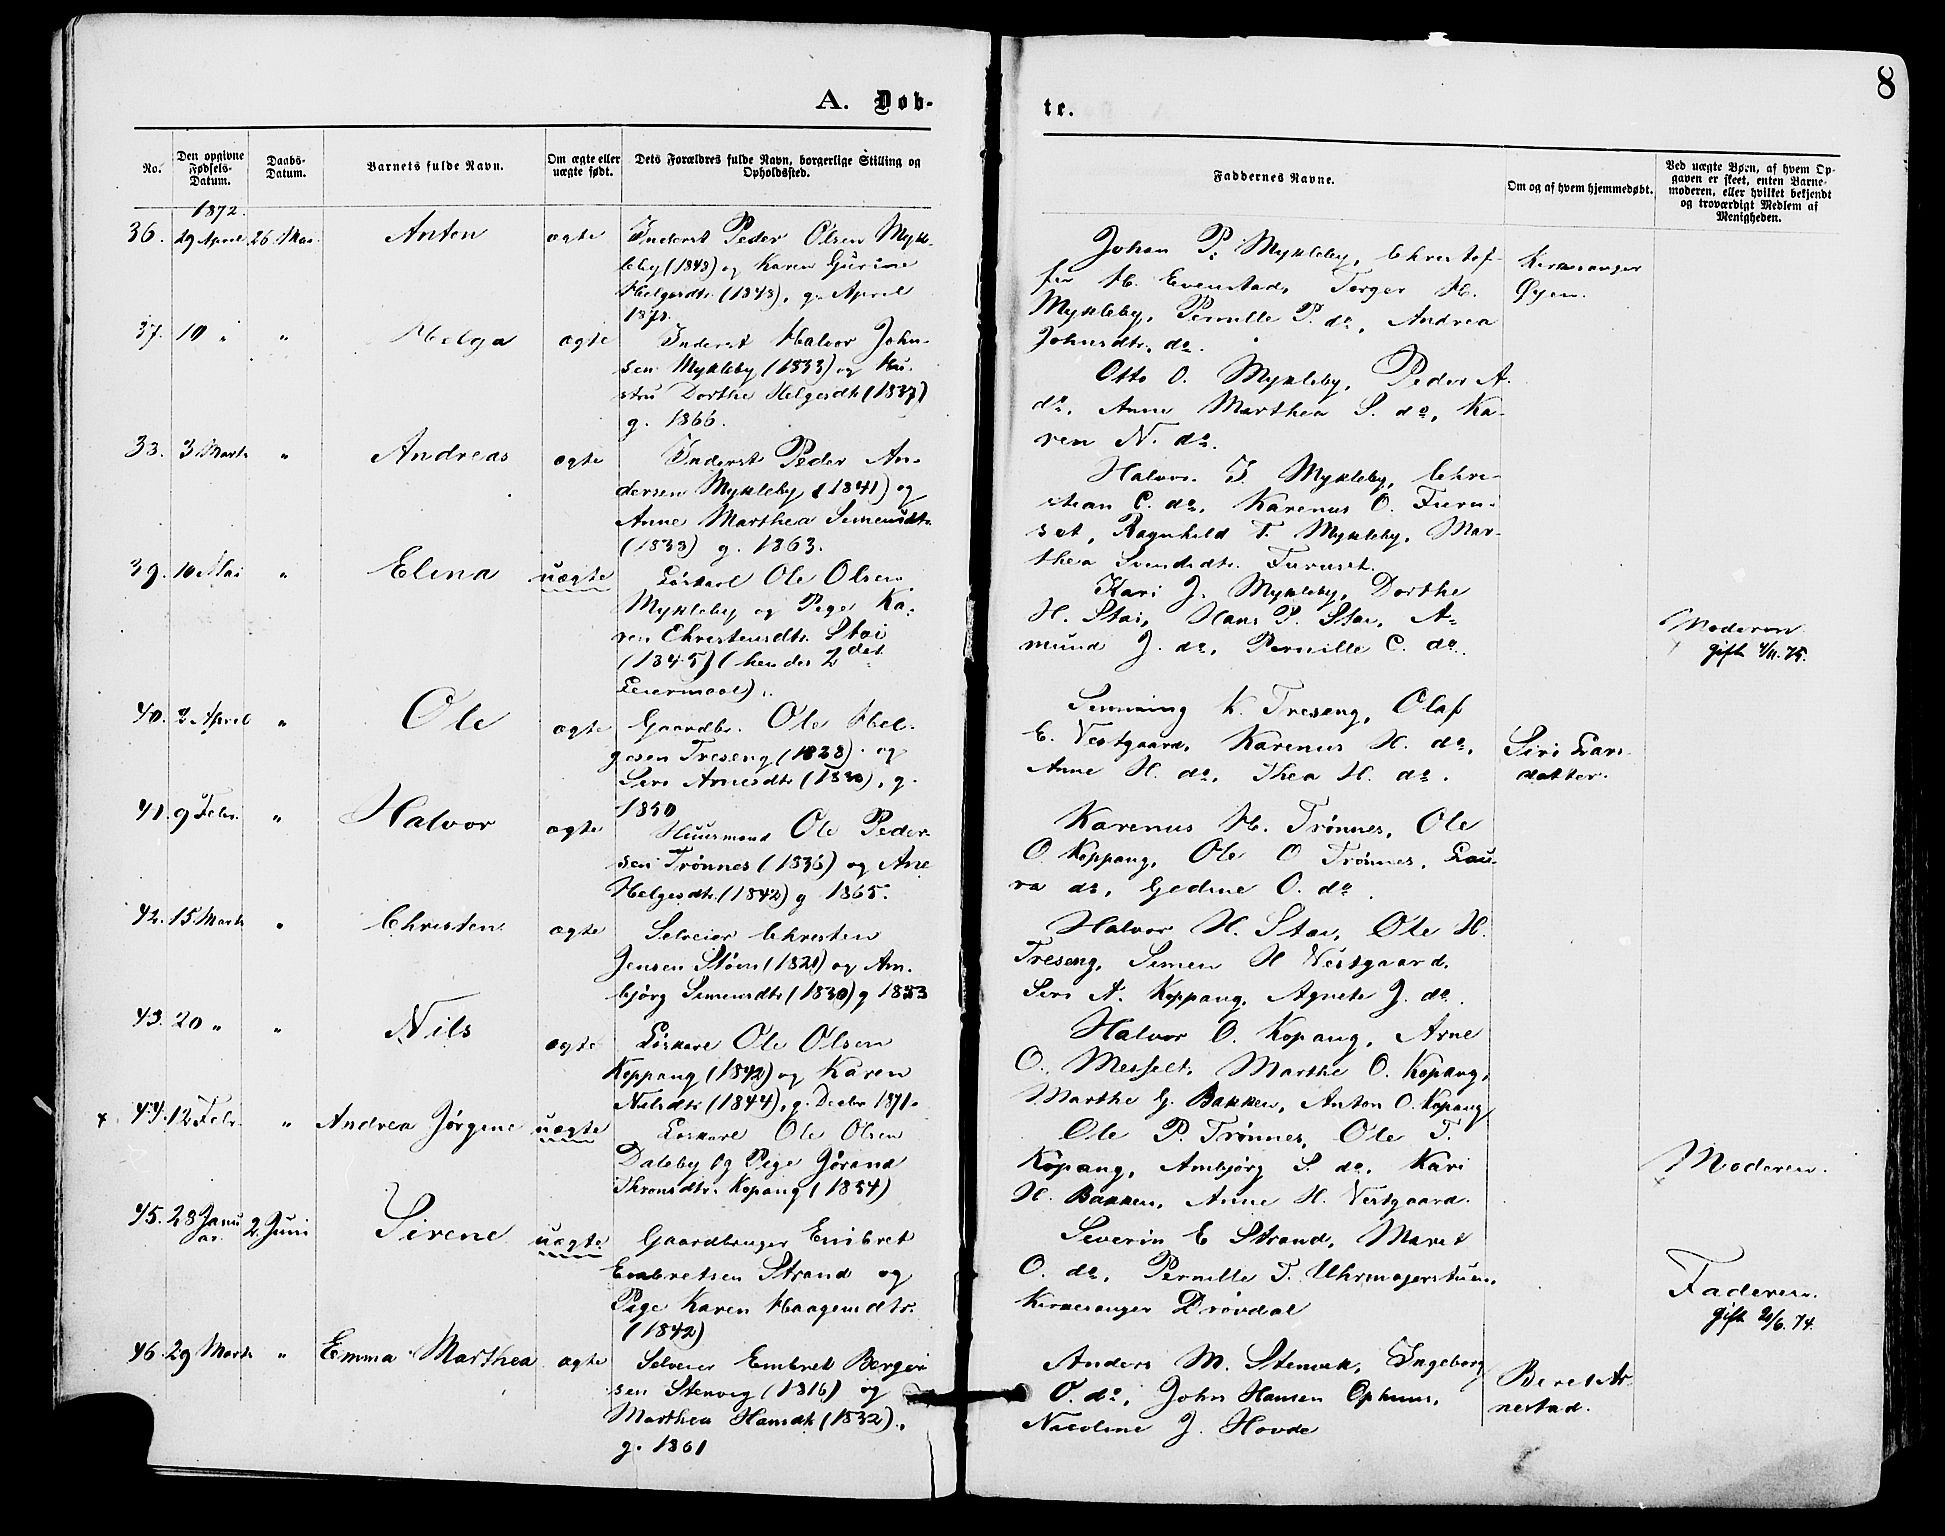 8
A. Døb-
te.
No.
Den opgivne
Fødsels-
Datum.
Daabs-
Datum.
Barnets fulde Navn.
Om ægte eller
uægte født.
Dets Forældres fulde Navn, borgerlige Stilling og
Opholdssted.
Faddernes Navne.
Om og af hvem hjemmedøbt.
Ved uægte Børn, af hvem Op-
gaven er skeet, enten Barne-
moderen, eller hvilket bekjendt
og troværdigt Medlem af
Menigheden.
1872.
36. 29 April 26 Mai Anton ægte Inderst Peder Olsen Mykl-
eby (1848) og Karen Gurine
Helgesdtr. (1848), g. April
1872.
Johan P. Mykleby, Christof-
fer H. Evenstad, Torger H.
Mykleby, Pernille P. do, Andrea
Johnsdtr. do.
Kirkesanger
Øyen.
37. 10 " " Helga ægte Inderst Halvor John-
sen Mykleby (1833) og Hu-
stru Dorthe Helgesdtr (1837)
g. 1866.
Otto O. Mykleby, Peder A.
do, Anne Marthea S. do, Ka-
ren N. do.
38. 3 Marts " Andreas ægte Inderst Peder An-
dersen Mykleby (1841) og
Anne Marthea Simensdtr.
(1838) g. 1863.
Halvor T. Mykleby, Chri-
stian C. do, Karenus O. Furu-
set, Ragnhild T. Mykleby, Mar-
thea Svendsdtr. Furuset.
39. 10 Mai " Elina uægte Løskarl Ole Olsen
Mykleby og Pige Ka-
ren Christensdtr. Stai
(1845) (hendes 2det
Leiermaal).
Kari J. Mykleby, Dorthe
H. Stai, Hans P. Stai, A-
mund J. do, Pernille C. do.
Moderen
gift 4/11.75.
40. 2 April " Ole ægte Gaardbr. Ole Hel-
gesen Treseng (1828) og
Siri Arnesdtr (1830), g.
1850
Simming K. Treseng, Olaf
E. Vestgaard, Karenus H. do,
Anne H. do, Thea H. do.
Siri Lars-
datter.
41. 9 Febr. " Halvor ægte Huusmand Ole Peder-
sen Trønnes (1836) og Ane
Helgesdtr. (1842) g 1865.
Karenus H. Trønnes, Ole
O. Koppang, Ole O Trønnes, Lau-
ra do, Gedine O. do.
42. 15 Marts " Christen ægte Selveier Christen
Jensen Støen (1821) og Am-
bjørg Simensdtr (1830) g 1853
Halvor H. Stai, Ole H.
Treseng, Simen H Vestgaard,
Siri A. Koppang, Agnete J. do.
43. 20 " " Nils ægte Løskarl Ole Olsen
Koppang (1842) og Karen
Nilsdtr (1844), g. Decbr 1871.
Halvor O. Kopang, Arne
O. Messelt, Marthe O. Kopang,
Marthe G. Bakken, Anton O. Kopang
44. 12 Febr. " Andrea Jørgine uægte Løskarl Ole Olsen
Daleby og Pige Gørand
Thronsdtr. Kopang (1854)
Ole P. Trønnes, Ole T.
Kopang, Ambjørg S. do, Kari
H. Bakken, Anne H. Vestgaard.
Moderen.
45. 28 Janu
ar. 2 Juni Sirene uægte Gaardbruger Embret
Embretsen Strand og
Pige Karen Haagensdtr.
(1842)
Severin E Strand, Maret
O. do, Pernille T. Uhrmagerstuen,
Kirkesanger Drøvdal
Faderen.
gift 20/6.74.
46. 29 Marts " Emma Marthea ægte Selveier Embret Berger-
sen Stenvig (1816) og
Marthea Hansdtr (1832),
g. 1861
Anders M. Stenvik, Ingeborg
O. do, John Hansen Ophuus,
Nicoline J. Hovde
Beret Ar-
nestad.